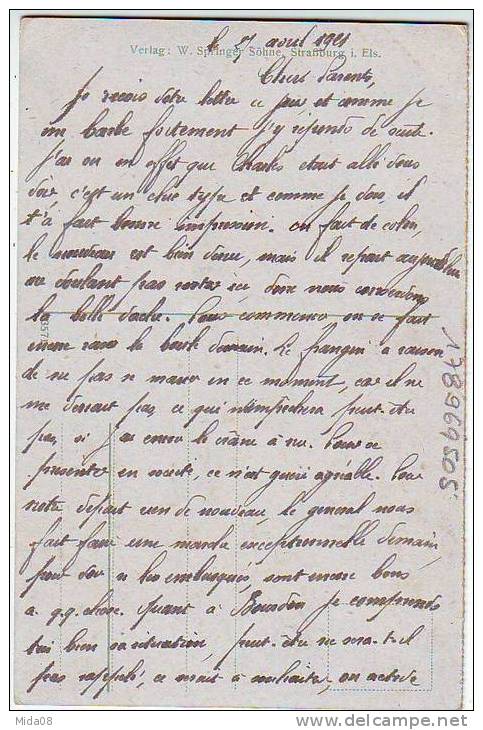 Verlag: W. Springer Söhne, Straßburg i. Els.
avril 1921
Chers Parents,
Je reçois votre lettre ce jour, et comme je
m barbe fortement j'y réponds de suite.
J'ai vu en effet que Charles était allé vous
voir, c'est un chic type et comme je vois, il
t'a fait bonne impression. En fait de colon,
le nouveau est bien venu, mais il repart aujourd'hui
ne voulant pas rester ici, donc nous conservons
la belle vache. Pour commencer on se fait
raser la barbe demain. Le frangin a raison
de ne pas se marier en ce moment, car il ne
me verrait pas, ce qui n'empêchera peut-être
pas, si j'ai encore le crâne à nu. Pour se
présenter en société, ce n'est guère agréable. Pour
notre départ rien de nouveau, le général nous
fait faire une marche exceptionnelle demain,
pour voir si les embusqués, sont encore bons
à q.q. chose. Quant à Bourdon je comprends
très bien sa situation, peut-être ne sera-t-il
pas rappelé, ce serait à souhaiter, on active
178969505
Mida08
www.delcampe.net